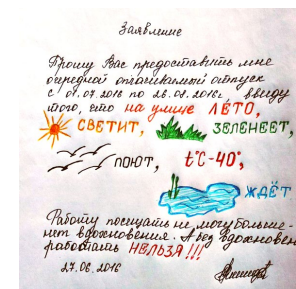 Заявление
Прошу Вас предоставить мне
очередной оплачиваемый отпуск
с 01.07.2016 по 28.08.2016г ввиду
того, что на улице ЛЁТО,
СВЕТИТ, ЗЕЛЕНЕЕТ,
ПОЮТ, t°C-40°,
ЖДЁТ
Работу посещать не могу больше-
нет вдохновения. А без вдохновен
работать НЕЛЬЗЯ!!!
27.06.2016